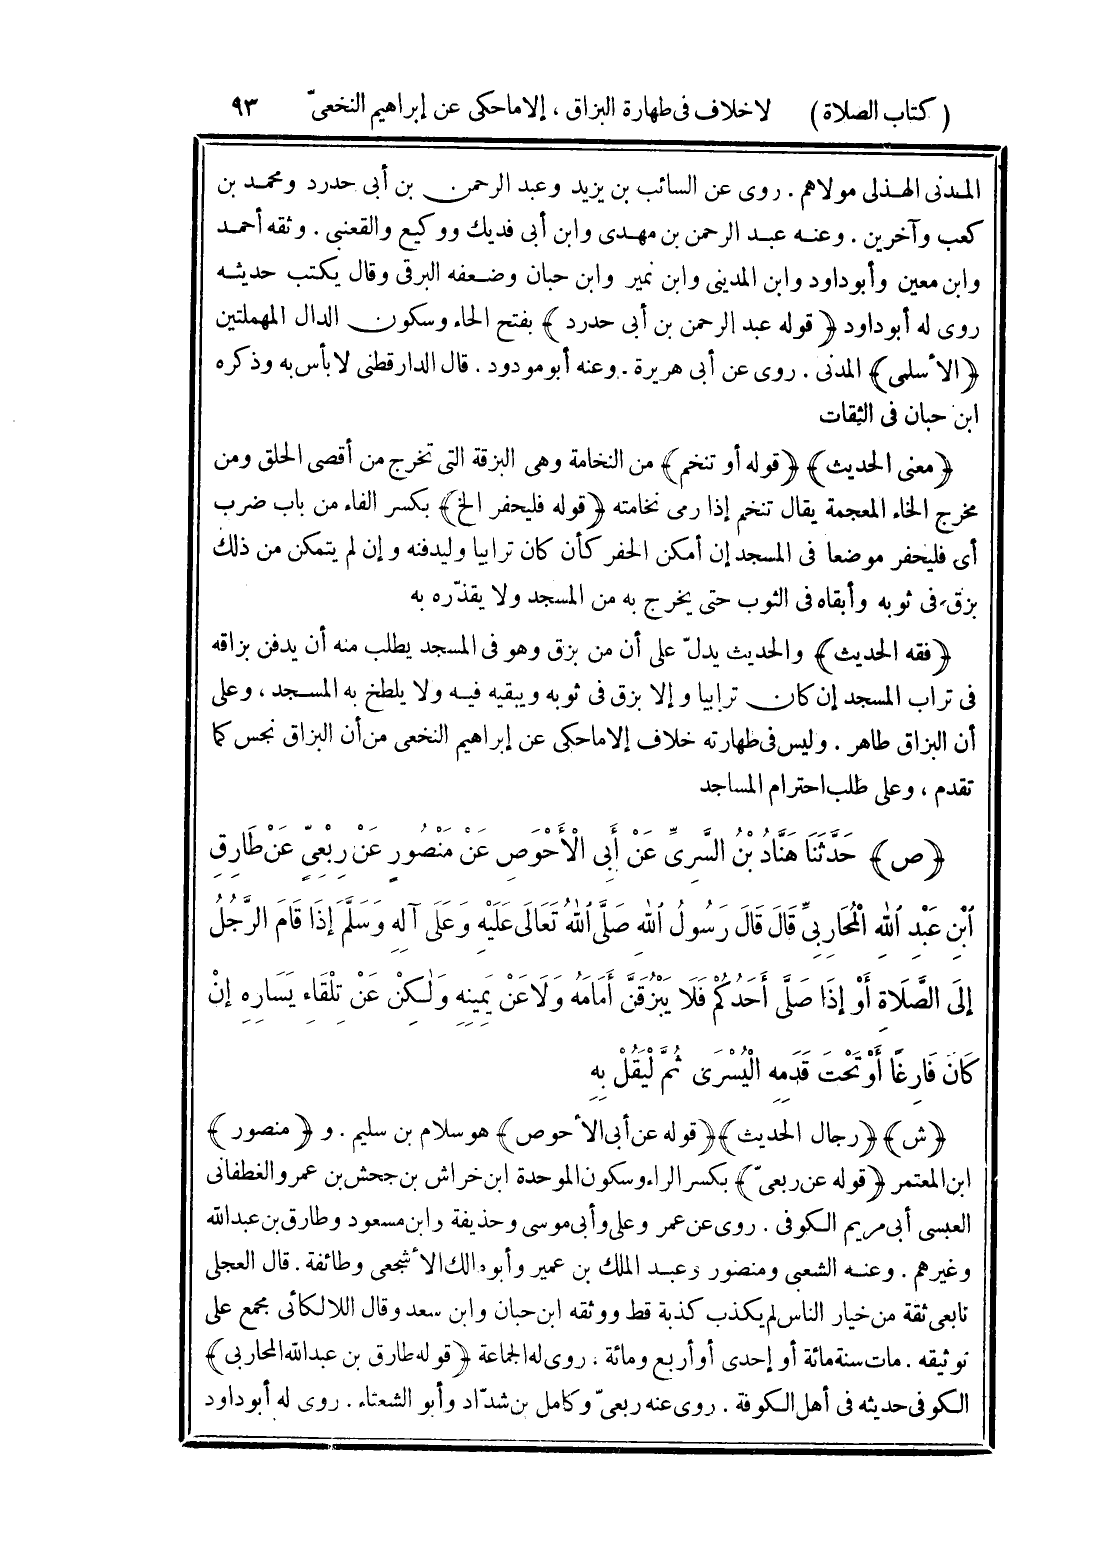 (كتاب الصلاة) لاخلاف فى طهارة البزاق ، إلاماحكى عن إبراهيم النخعىّ ٩٣
المدنى الهذلى مولاهم . روى عن السائب بن يزيد وعبد الرحمن بن أبى حدرد ومحمد بن
كعب وآخرين . وعنه عبد الرحمن بن مهدى وابن أبى فديك ووكيع والقعنبى . وثقه أحمد
وابن معين وأبوداود وابن المدينى وابن نمير وابن حبان وضعفه البرقى وقال يكتب حديثه
روى له أبوداود ﴿قوله عبد الرحمن بن أبى حدرد﴾ بفتح الحاء وسكون الدال المهملتين
﴿الأسلمى﴾ المدنى . روى عن أبى هريرة . وعنه أبومودود . قال الدارقطنى لابأس به وذكره
ابن حبان فى الثقات
﴿معنى الحديث﴾ ﴿قوله أو تنخم﴾ من النخامة وهى البزقة التى تخرج من أقصى الحلق ومن
مخرج الخاء المعجمة يقال تنخم إذا رمى نخامته ﴿قوله فليحفر الخ﴾ بكسر الفاء من باب ضرب
أى فليحفر موضعا فى المسجد إن أمكن الحفر كأن كان ترابيا وليدفنه وإن لم يتمكن من ذلك
بزق فى ثوبه وأبقاه فى الثوب حتى يخرج به من المسجد ولا يقذّره به
﴿فقه الحديث﴾ والحديث يدلّ على أن من بزق وهو فى المسجد يطلب منه أن يدفن بزاقه
فى تراب المسجد إن كان ترابيا وإلا بزق فى ثوبه ويبقيه فيه ولا يلطخ به المسجد ، وعلى
أن البزاق طاهر . وليس فى طهارته خلاف إلاماحكى عن إبراهيم النخعى من أن البزاق نجس كما
تقدم ، وعلى طلب احترام المساجد
﴿ص﴾ حَدَّثَنَا هَنَّادُ بْنُ السَّرِىِّ عَنْ أَبِى الْأَحْوَصِ عَنْ مَنْصُورٍ عَنْ رِبْعِىٍّ عَنْ طَارِقِ
ابْنِ عَبْدِ اللهِ الْمُحَارِبِىِّ قَالَ قَالَ رَسُولُ اللهِ صَلَّى اللهُ تَعَالَى عَلَيْهِ وَعَلَى آلِهِ وَسَلَّمَ إِذَا قَامَ الرَّجُلُ
إِلَى الصَّلَاةِ أَوْ إِذَا صَلَّى أَحَدُكُمْ فَلَا يَبْزُقَنَّ أَمَامَهُ وَلَا عَنْ يَمِينِهِ وَلٰكِنْ عَنْ تِلْقَاءِ يَسَارِهِ إِنْ
كَانَ فَارِغًا أَوْ تَحْتَ قَدَمِهِ الْيُسْرَى ثُمَّ لْيَقُلْ بِهِ
﴿ش﴾ ﴿رجال الحديث﴾ ﴿قوله عن أبى الأحوص﴾ هو سلام بن سليم . و ﴿منصور﴾
ابن المعتمر ﴿قوله عن ربعىّ﴾ بكسر الراء وسكون الموحدة ابن خراش بن جحش بن عمرو الغطفانى
العبسى أبى مريم الكوفى . روى عن عمر وعلى وأبى موسى وحذيفة وابن مسعود وطارق بن عبدالله
وغيرهم . وعنه الشعبى ومنصور وعبد الملك بن عمير وأبومالك الأشجعى وطائفة . قال العجلى
تابعى ثقة من خيار الناس لم يكذب كذبة قط ووثقه ابن حبان وابن سعد وقال اللالكائى مجمع على
توثيقه . مات سنة مائة أو إحدى أو أربع ومائة . روى له الجماعة ﴿قوله طارق بن عبدالله المحاربى﴾
الكوفى حديثه فى أهل الكوفة . روى عنه ربعىّ وكامل بن شدّاد وأبو الشعثاء . روى له أبوداود